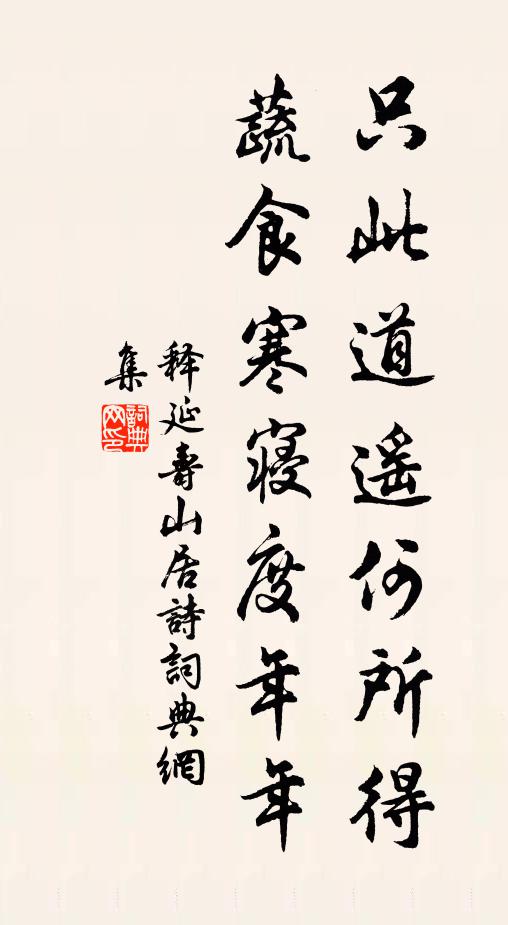 只此道遥何所得
蔬食寒寝度年年
释延壽山居詩詞典網
集
詞典
网印